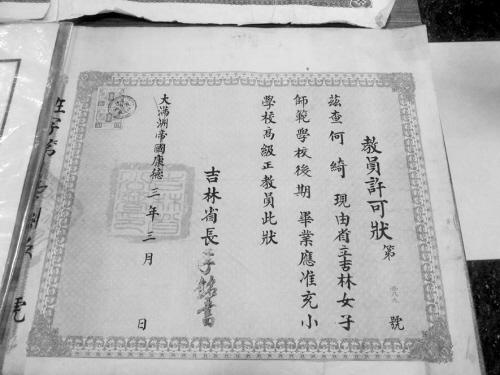 教員許可狀第　號
茲查何綺現由省立吉林女子
師範學校後期畢業應准充小
學校高級正教員此狀
吉林省長李銘書
大滿洲帝國康德三年三月　日